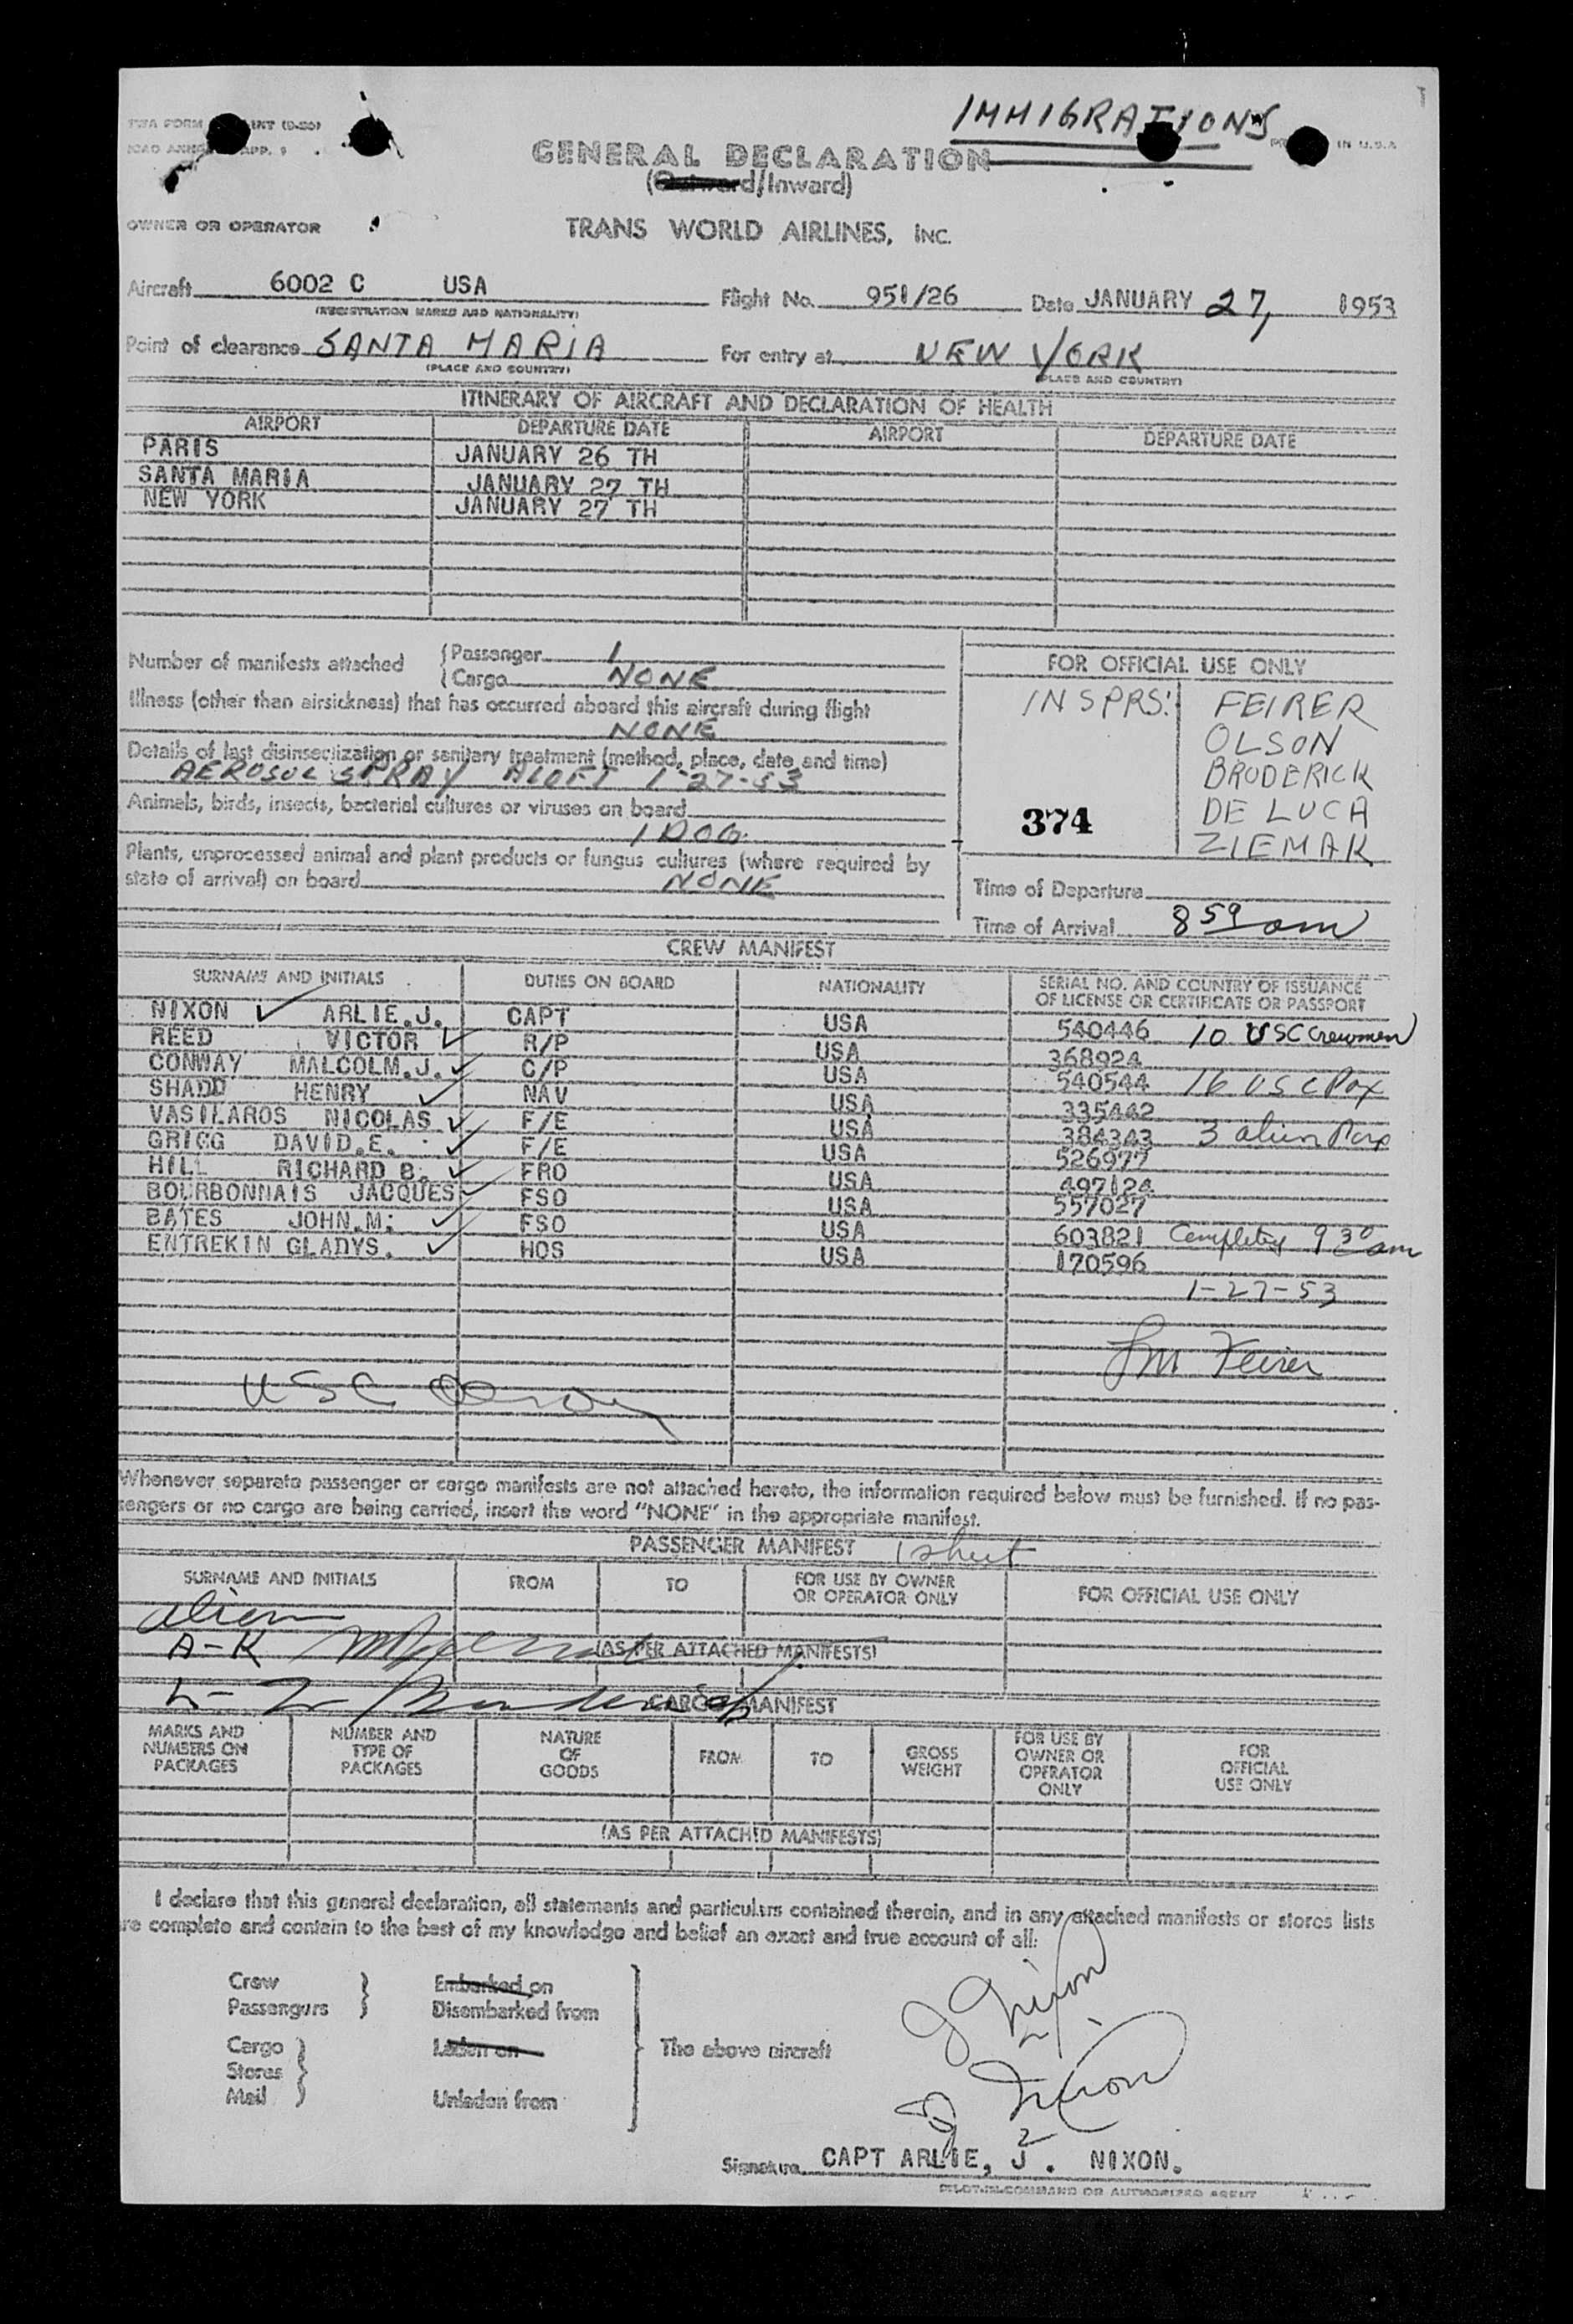 IMMIGRATIONS
GENERAL DECLARATION
(Outward/Inward)
OWNER OR OPERATOR TRANS WORLD AIRLINES, INC.
Aircraft 6002 C USA Flight No. 951/26 Date JANUARY 27, 1953
(REGISTRATION MARKS AND NATIONALITY)
Point of clearance SANTA MARIA For entry at NEW YORK
(PLACE AND COUNTRY) (PLACE AND COUNTRY)
ITINERARY OF AIRCRAFT AND DECLARATION OF HEALTH
AIRPORT DEPARTURE DATE AIRPORT DEPARTURE DATE
PARIS JANUARY 26 TH
SANTA MARIA JANUARY 27 TH
NEW YORK JANUARY 27 TH
Number of manifests attached {Passenger 1
{Cargo NONE
Illness (other than airsickness) that has occurred aboard this aircraft during flight
NONE
Details of last disinsectization or sanitary treatment (method, place, date and time)
AEROSOL SPRAY ALOFT 1-27-53
Animals, birds, insects, bacterial cultures or viruses on board
1 DOG
Plants, unprocessed animal and plant products or fungus cultures (where required by
state of arrival) on board NONE
FOR OFFICIAL USE ONLY
INSPRS: FEIRER
OLSON
BRODERICK
374 DE LUCA
ZIEMAK
Time of Departure
Time of Arrival 8 59 am
CREW MANIFEST
SURNAME AND INITIALS DUTIES ON BOARD NATIONALITY SERIAL NO. AND COUNTRY OF ISSUANCE
OF LICENSE OR CERTIFICATE OR PASSPORT
NIXON ARLIE.J. CAPT USA 540446 10 USC Crewmen
REED VICTOR R/P USA 368924
CONWAY MALCOLM.J. C/P USA 540544 16 USC Pax
SHADD HENRY NAV USA 335442
VASILAROS NICOLAS F/E USA 384343 3 alien Pax
GRIGG DAVID.E. F/E USA 526977
HILL RICHARD B. FRO USA 497124
BOURBONNAIS JACQUES FSO USA 557027
BATES JOHN.M: FSO USA 603821 Completed 9 30 am
ENTREKIN GLADYS. HOS USA 170596
1-27-53
Feirer
USC
Whenever separate passenger or cargo manifests are not attached hereto, the information required below must be furnished. If no pas-
sengers or no cargo are being carried, insert the word "NONE" in the appropriate manifest.
PASSENGER MANIFEST 1 sheet
SURNAME AND INITIALS FROM TO FOR USE BY OWNER
OR OPERATOR ONLY FOR OFFICIAL USE ONLY
alien
A-K (AS PER ATTACHED MANIFESTS)
L-Z CARGO MANIFEST
MARKS AND
NUMBERS ON
PACKAGES NUMBER AND
TYPE OF
PACKAGES NATURE
OF
GOODS FROM TO GROSS
WEIGHT FOR USE BY
OWNER OR
OPERATOR
ONLY FOR
OFFICIAL
USE ONLY
(AS PER ATTACHED MANIFESTS)
I declare that this general declaration, all statements and particulars contained therein, and in any attached manifests or stores lists
re complete and contain to the best of my knowledge and belief an exact and true account of all:
Crew } Embarked on
Passengers } Disembarked from
Cargo } Laden on The above aircraft
Stores
Mail } Unladen from
J Nixon
J Nixon
Signature CAPT ARLIE, J. NIXON.
PILOT-IN-COMMAND OR AUTHORIZED AGENT